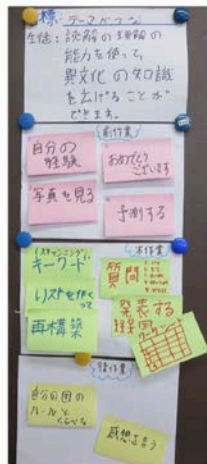 標:テーマべつな
生徒:読解の理解の
能力を使って、
異文化の知識
を広げることが
できます。
前作業
自分の
経験
おめでとう
ございます
写真を見る
予測する
本作業
(スキャンニング)
キーワード
質問
リストを作
って
発表する
再構築
後作業
自分の国の
ルールと
くらべる
感想を言う